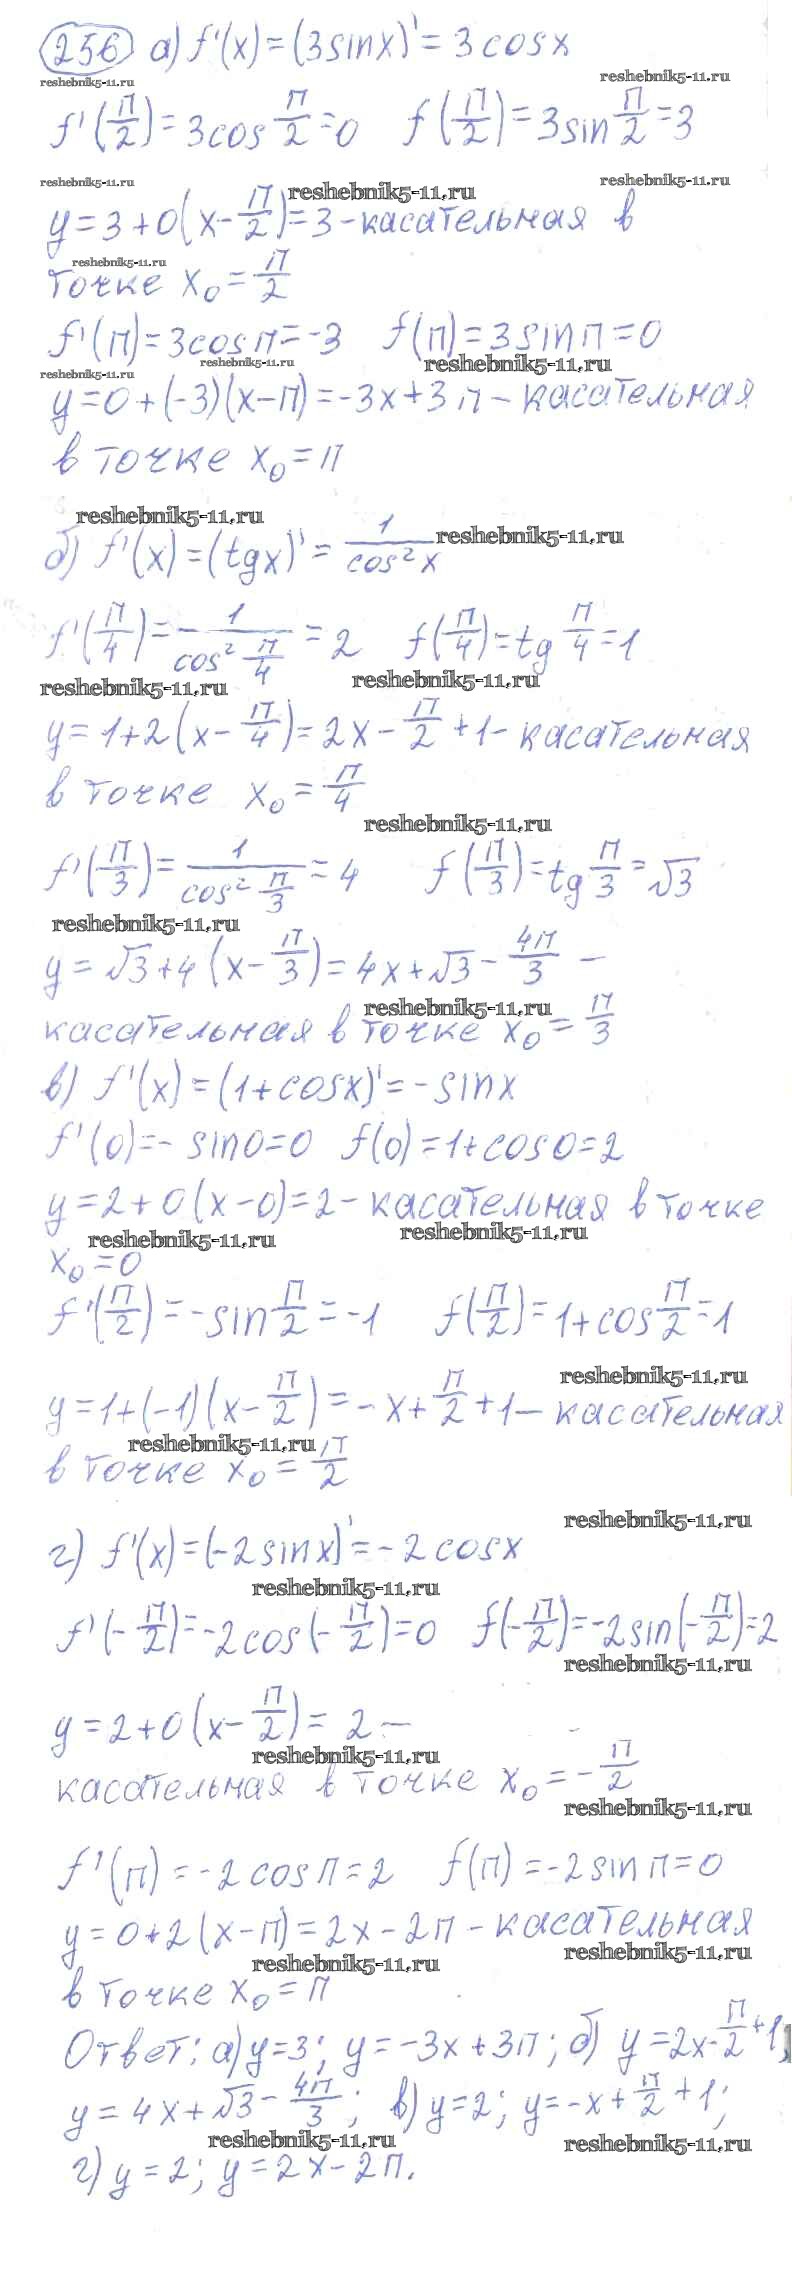 256 а) f'(x) = (3sinx)' = 3cosx
reshebnik5-11.ru reshebnik5-11.ru
f'(π/2) = 3cos π/2 = 0 f(π/2) = 3sin π/2 = 3
reshebnik5-11.ru reshebnik5-11.ru reshebnik5-11.ru
y = 3 + 0(x - π/2) = 3 - касательная в
reshebnik5-11.ru
точке x₀ = π/2
f'(π) = 3cosπ = -3 f(π) = 3sinπ = 0
reshebnik5-11.ru reshebnik5-11.ru
reshebnik5-11.ru
y = 0 + (-3)(x - π) = -3x + 3π - касательная
в точке x₀ = π
reshebnik5-11.ru
б) f'(x) = (tgx)' = 1/cos²x reshebnik5-11.ru
f'(π/4) = 1/cos² π/4 = 2 f(π/4) = tg π/4 = 1
reshebnik5-11.ru reshebnik5-11.ru
y = 1 + 2(x - π/4) = 2x - π/2 + 1 - касательная
в точке x₀ = π/4
reshebnik5-11.ru
f'(π/3) = 1/cos² π/3 = 4 f(π/3) = tg π/3 = √3
reshebnik5-11.ru
y = √3 + 4(x - π/3) = 4x + √3 - 4π/3 -
reshebnik5-11.ru
касательная в точке x₀ = π/3
в) f'(x) = (1 + cosx)' = -sinx
f'(0) = - sin0 = 0 f(0) = 1 + cos0 = 2
y = 2 + 0(x - 0) = 2 - касательная в точке
reshebnik5-11.ru reshebnik5-11.ru
x₀ = 0
f'(π/2) = -sin π/2 = -1 f(π/2) = 1 + cos π/2 = 1
reshebnik5-11.ru
y = 1 + (-1)(x - π/2) = -x + π/2 + 1 - касательная
reshebnik5-11.ru
в точке x₀ = π/2
reshebnik5-11.ru
г) f'(x) = (-2sinx)' = -2cosx
reshebnik5-11.ru
f'(-π/2) = -2cos(-π/2) = 0 f(-π/2) = -2sin(-π/2) = 2
reshebnik5-11.ru
y = 2 + 0(x - π/2) = 2 -
reshebnik5-11.ru
касательная в точке x₀ = -π/2
reshebnik5-11.ru
f'(π) = -2cosπ = 2 f(π) = -2sinπ = 0
y = 0 + 2(x - π) = 2x - 2π - касательная
reshebnik5-11.ru reshebnik5-11.ru
в точке x₀ = π
Ответ: а) y = 3; y = -3x + 3π; б) y = 2x - π/2 + 1;
y = 4x + √3 - 4π/3; в) y = 2; y = -x + π/2 + 1;
reshebnik5-11.ru reshebnik5-11.ru
г) y = 2; y = 2x - 2π.